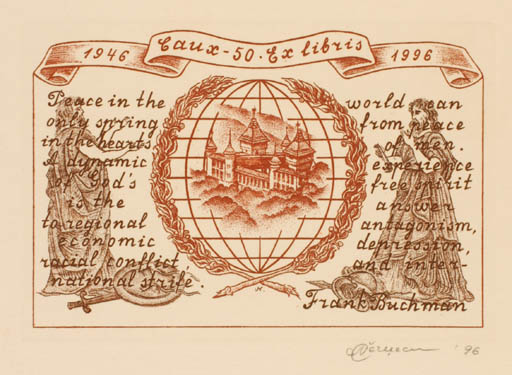 1946 Caux-50. Ex libris 1996
Peace in the world can
only spring from peace
in the hearts of men.
A dynamic experience
of God's free spirit
is the answer
to regional antagonism,
economic depression,
racial conflict and inter-
national strife.
Frank Buchman
'96